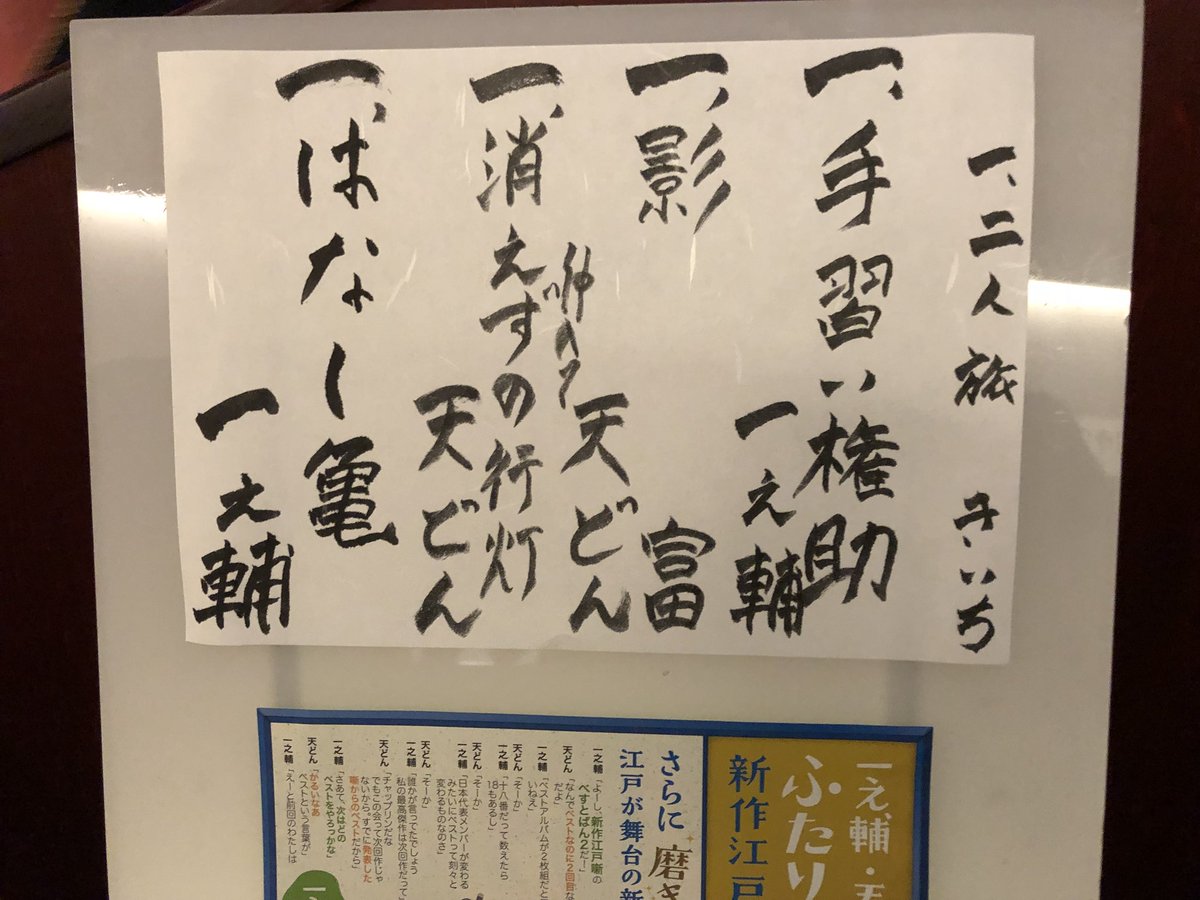 一、二人旅 きいち
一、手習い権助
一之輔
一、影 富
天どん
仲入り
一、消えずの行灯
天どん
一、はなし亀
一之輔
一之輔・天
ふたり
新作江戸
さらに磨き
江戸が舞台の新
一之輔「よーし、新作江戸噺の
べすとばん2だー！」
天どん「なんでベストなのに2回目な
だよ」
一之輔「ベストアルバムが2枚組だと
いねえ」
天どん「そーか」
一之輔「十八番だって数えたら
18もあるし」
天どん「そーか」
一之輔「日本代表メンバーが変わる
みたいにベストって刻々と
変わるものなのさ」
天どん「そーか」
一之輔「誰かが言ってたでしょう
私の最高傑作は次回作だって
天どん「チャップリンだな
でもこの会って次回作じゃ
ないから。すでに発表した
噺からのベストだから」
一之輔「さあて、次はどの
ベストをやろっかな」
天どん「かるいなあ
ベストという言葉が」
一之輔「えーと前回のわたしは